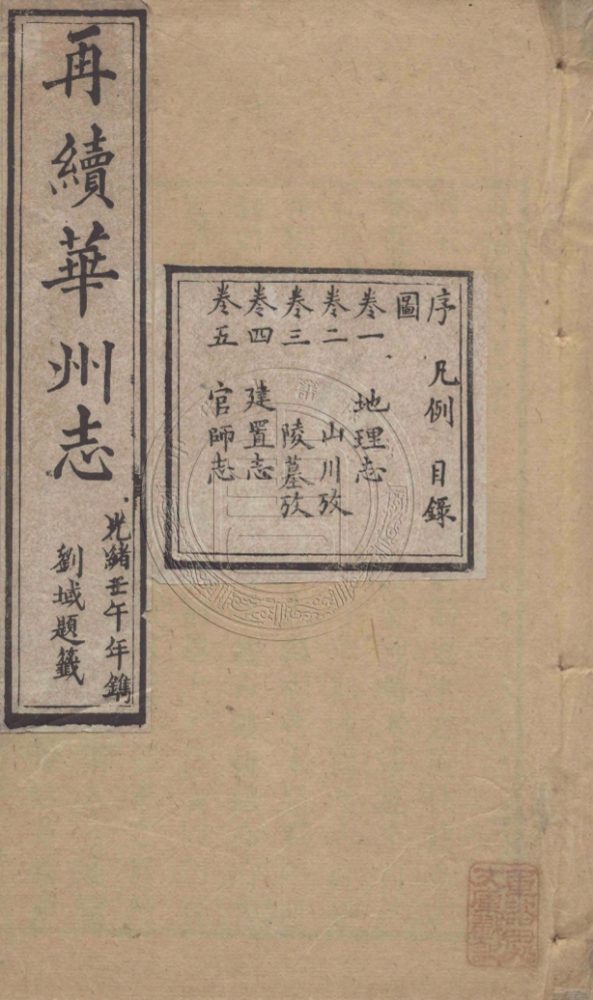 再續華州志
光緒壬午年鐫
劉域題籤
序 凡例 目錄
圖
卷一 地理志
卷二 山川攷
卷三 陵墓攷
卷四 建置志
卷五 官師志